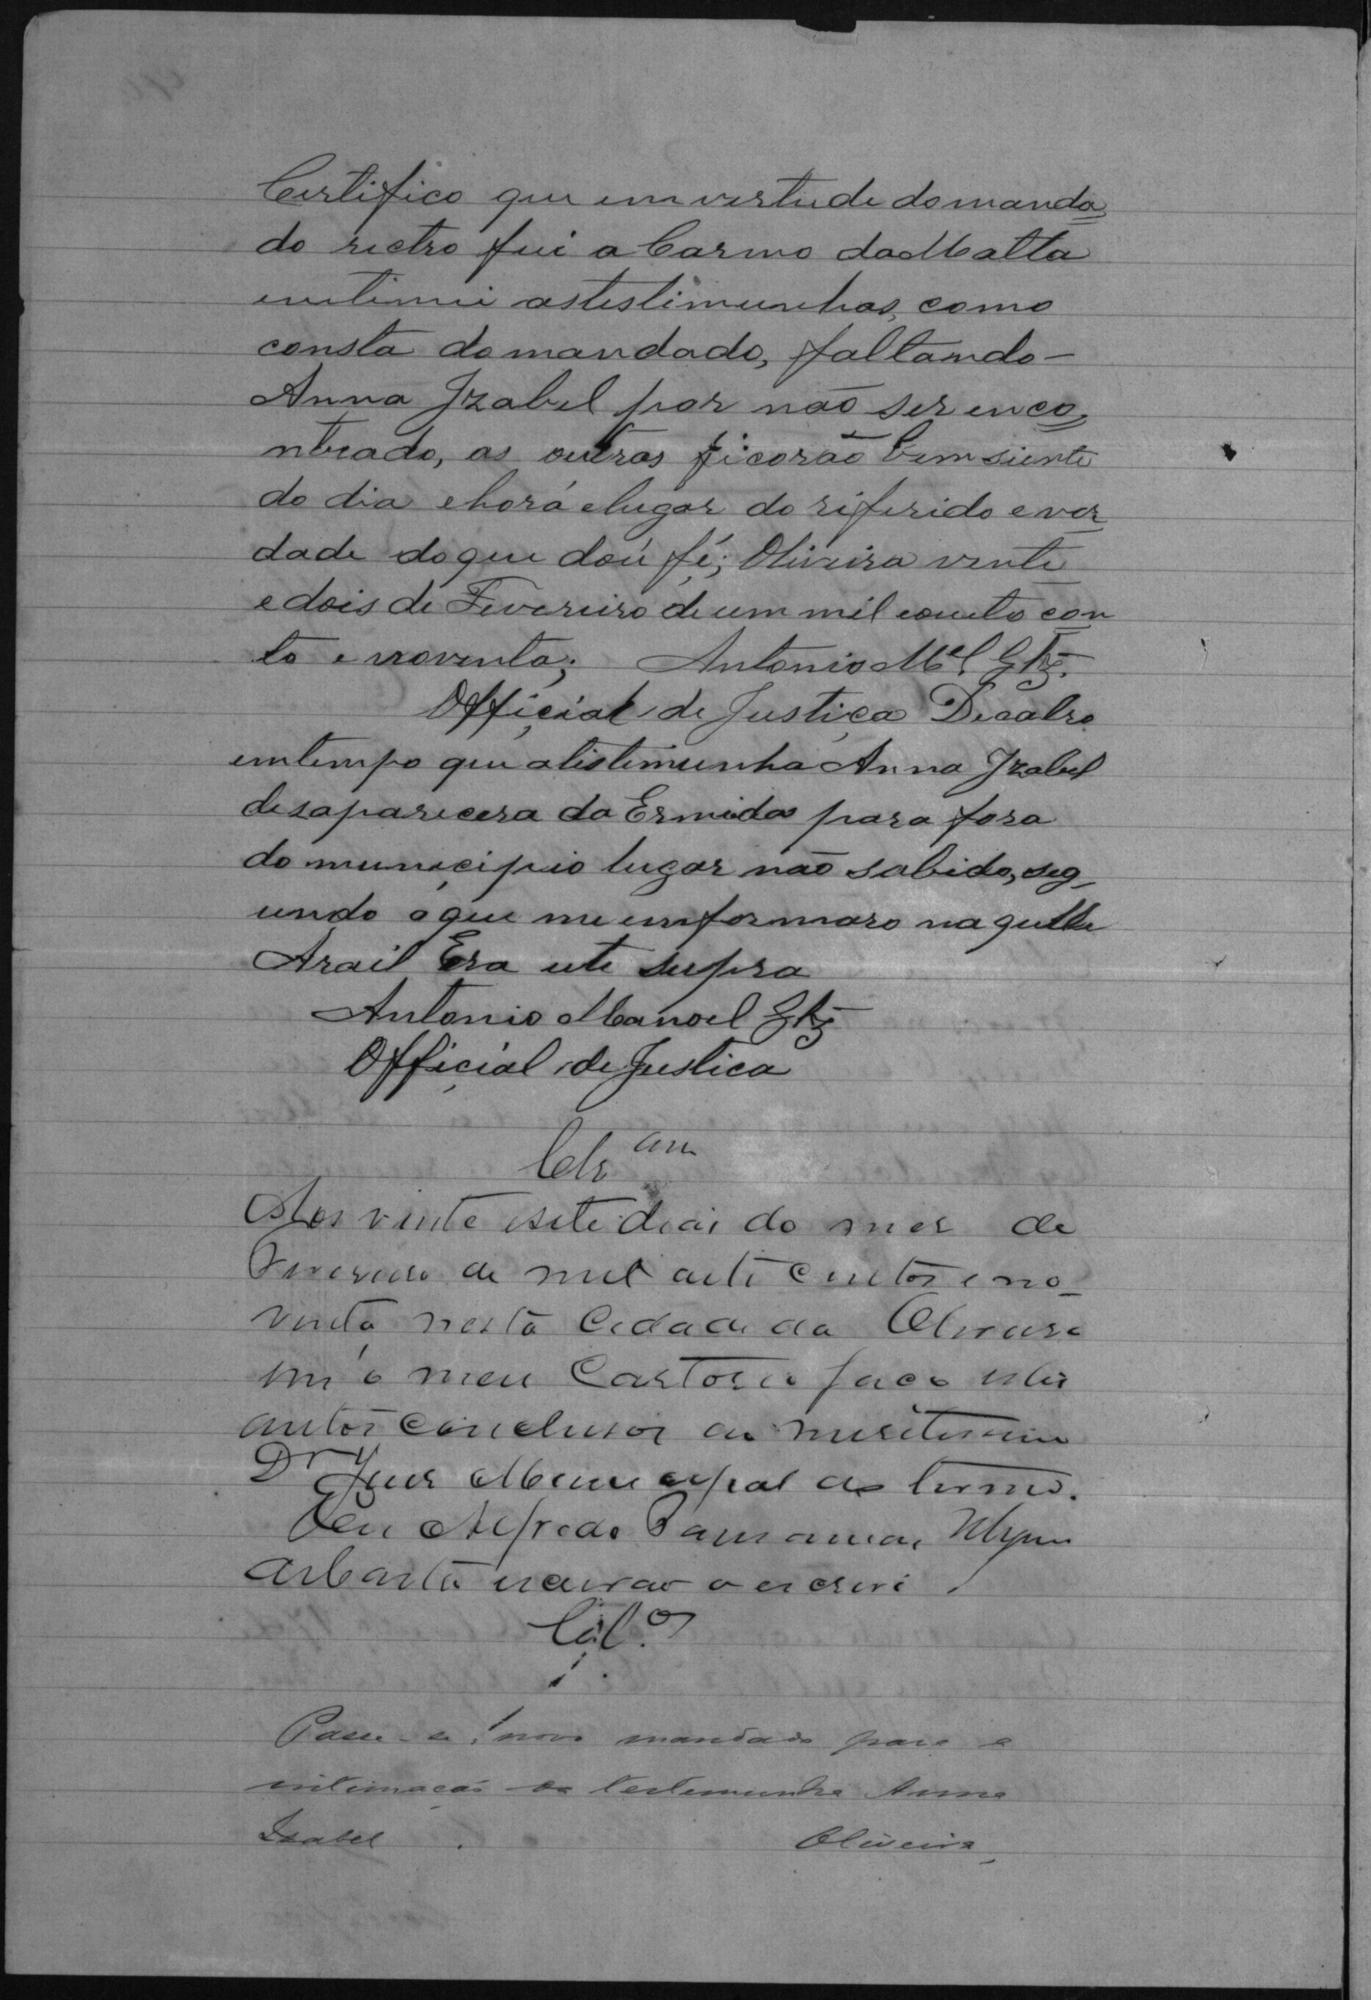 Certifico que em vertude do manda=
do rectro fui a Carmo da Matta
intimei as testimunhas, como
consta do mandado, faltando-
Anna Izabel por não ser enco=
ntrado, as outras ficorão bem siente
do dia e horá e lugar do riferido e ver
dade do que doú fé; Oliveira vente
e dois de Fevereiro de um mil e oueto cen
to e noventa; Antonio Mel.
Official de Justiça Decalro
em tempo que a tistimunha Anna Izabel
desaparecera da Ermida para fora
do municipio lugar não sabido, seg=
undo o que me emformaro naquelle
Arail Era ute supra
Antonio Manoel
Official de Justica
Clsam
Aos vinte e sete dias do mes de
Fevereiro de mil oito centos e no=
venta nesta Cidade da Oliveira
em o meu Cartorio faço estes
autos conclusos ao meritissimo
Dr Juis Municipal do termo.
Eu Alfredo
escrivão o escrevi.
Clsos
Passe-se novo mandado para a
intimação da testemunha Anna
Isabel. Oliveira